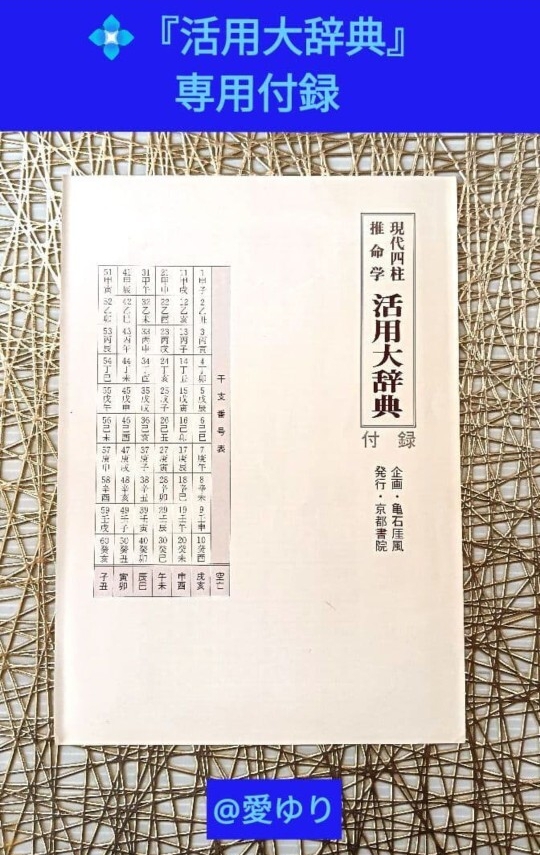 💠『活用大辞典』
専用付録
現代四柱
推命学
活用大辞典
付録
企画・亀石厓風
発行・京都書院
干支番号表 空亡
1甲子 2乙丑 3丙寅 4丁卯 5戊辰 6己巳 7庚午 8辛未 9壬申 10癸酉 戌亥
11甲戌 12乙亥 13丙子 14丁丑 15戊寅 16己卯 17庚辰 18辛巳 19壬午 20癸未 申酉
21甲申 22乙酉 23丙戌 24丁亥 25戊子 26己丑 27庚寅 28辛卯 29壬辰 30癸巳 午未
31甲午 32乙未 33丙申 34丁酉 35戊戌 36己亥 37庚子 38辛丑 39壬寅 40癸卯 辰巳
41甲辰 42乙巳 43丙午 44丁未 45戊申 46己酉 47庚戌 48辛亥 49壬子 50癸丑 寅卯
51甲寅 52乙卯 53丙辰 54丁巳 55戊午 56己未 57庚申 58辛酉 59壬戌 60癸亥 子丑
@愛ゆり